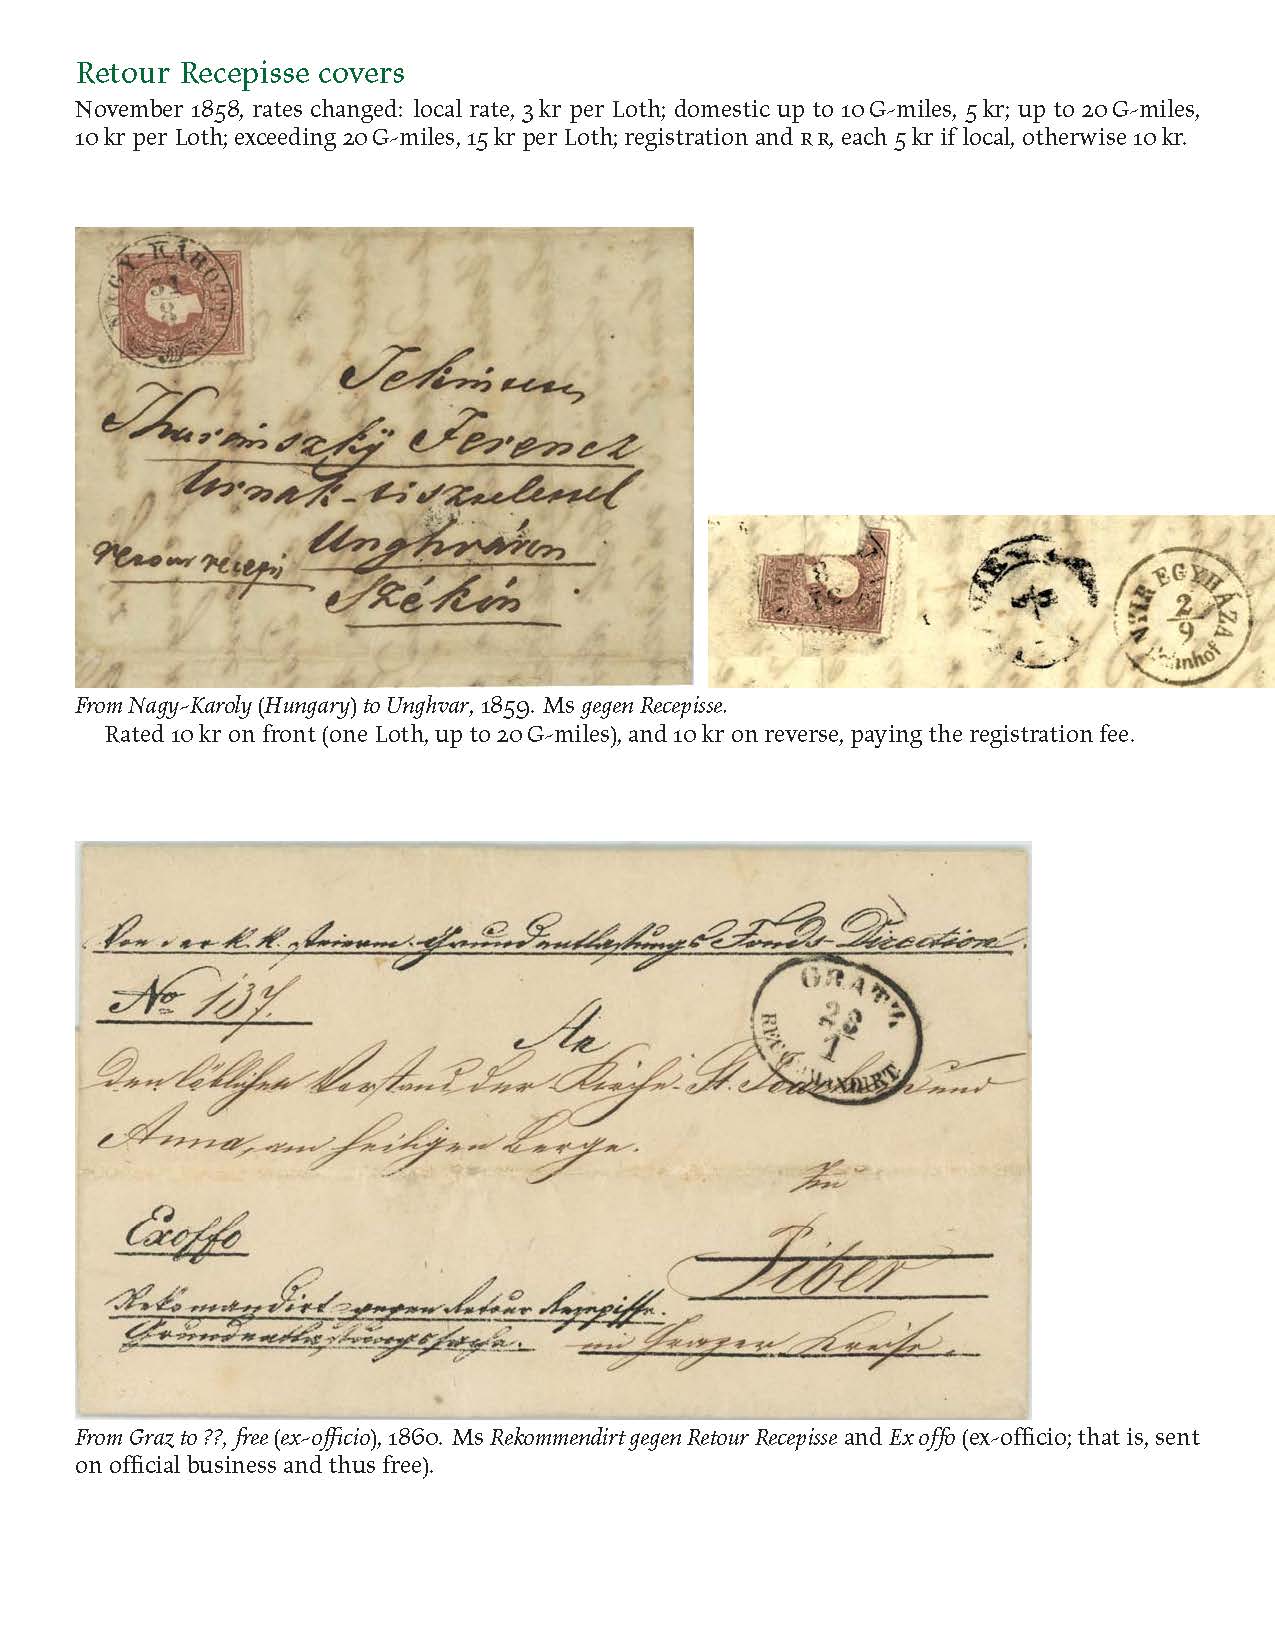 Retour Recepisse covers
November 1858, rates changed: local rate, 3 kr per Loth; domestic up to 10 G-miles, 5 kr; up to 20 G-miles,
10 kr per Loth; exceeding 20 G-miles, 15 kr per Loth; registration and R R, each 5 kr if local, otherwise 10 kr.
31
8
Thuránszký Ferencz
Unghváron
retour recepis
Székón
NYIR EGYHÁZA
2
9
Bahnhof
From Nagy-Karoly (Hungary) to Unghvar, 1859. Ms gegen Recepisse.
Rated 10 kr on front (one Loth, up to 20 G-miles), and 10 kr on reverse, paying the registration fee.
Von der k. k. steierm. Grundentlastungs Fonds-Direction.
GRATZ
28
1
RECOMMANDIRT
No 137.
An
den löblichen Vorstand der Kirche St. Joachim und
Anna, am heiligen Berge.
Zu
Exoffo
Piber
Rekomandirt gegen Retour Rezepisse.
Grundentlastungssache. im Grazer Kreise.
From Graz to ??, free (ex-officio), 1860. Ms Rekommendirt gegen Retour Recepisse and Ex offo (ex-officio; that is, sent
on official business and thus free).